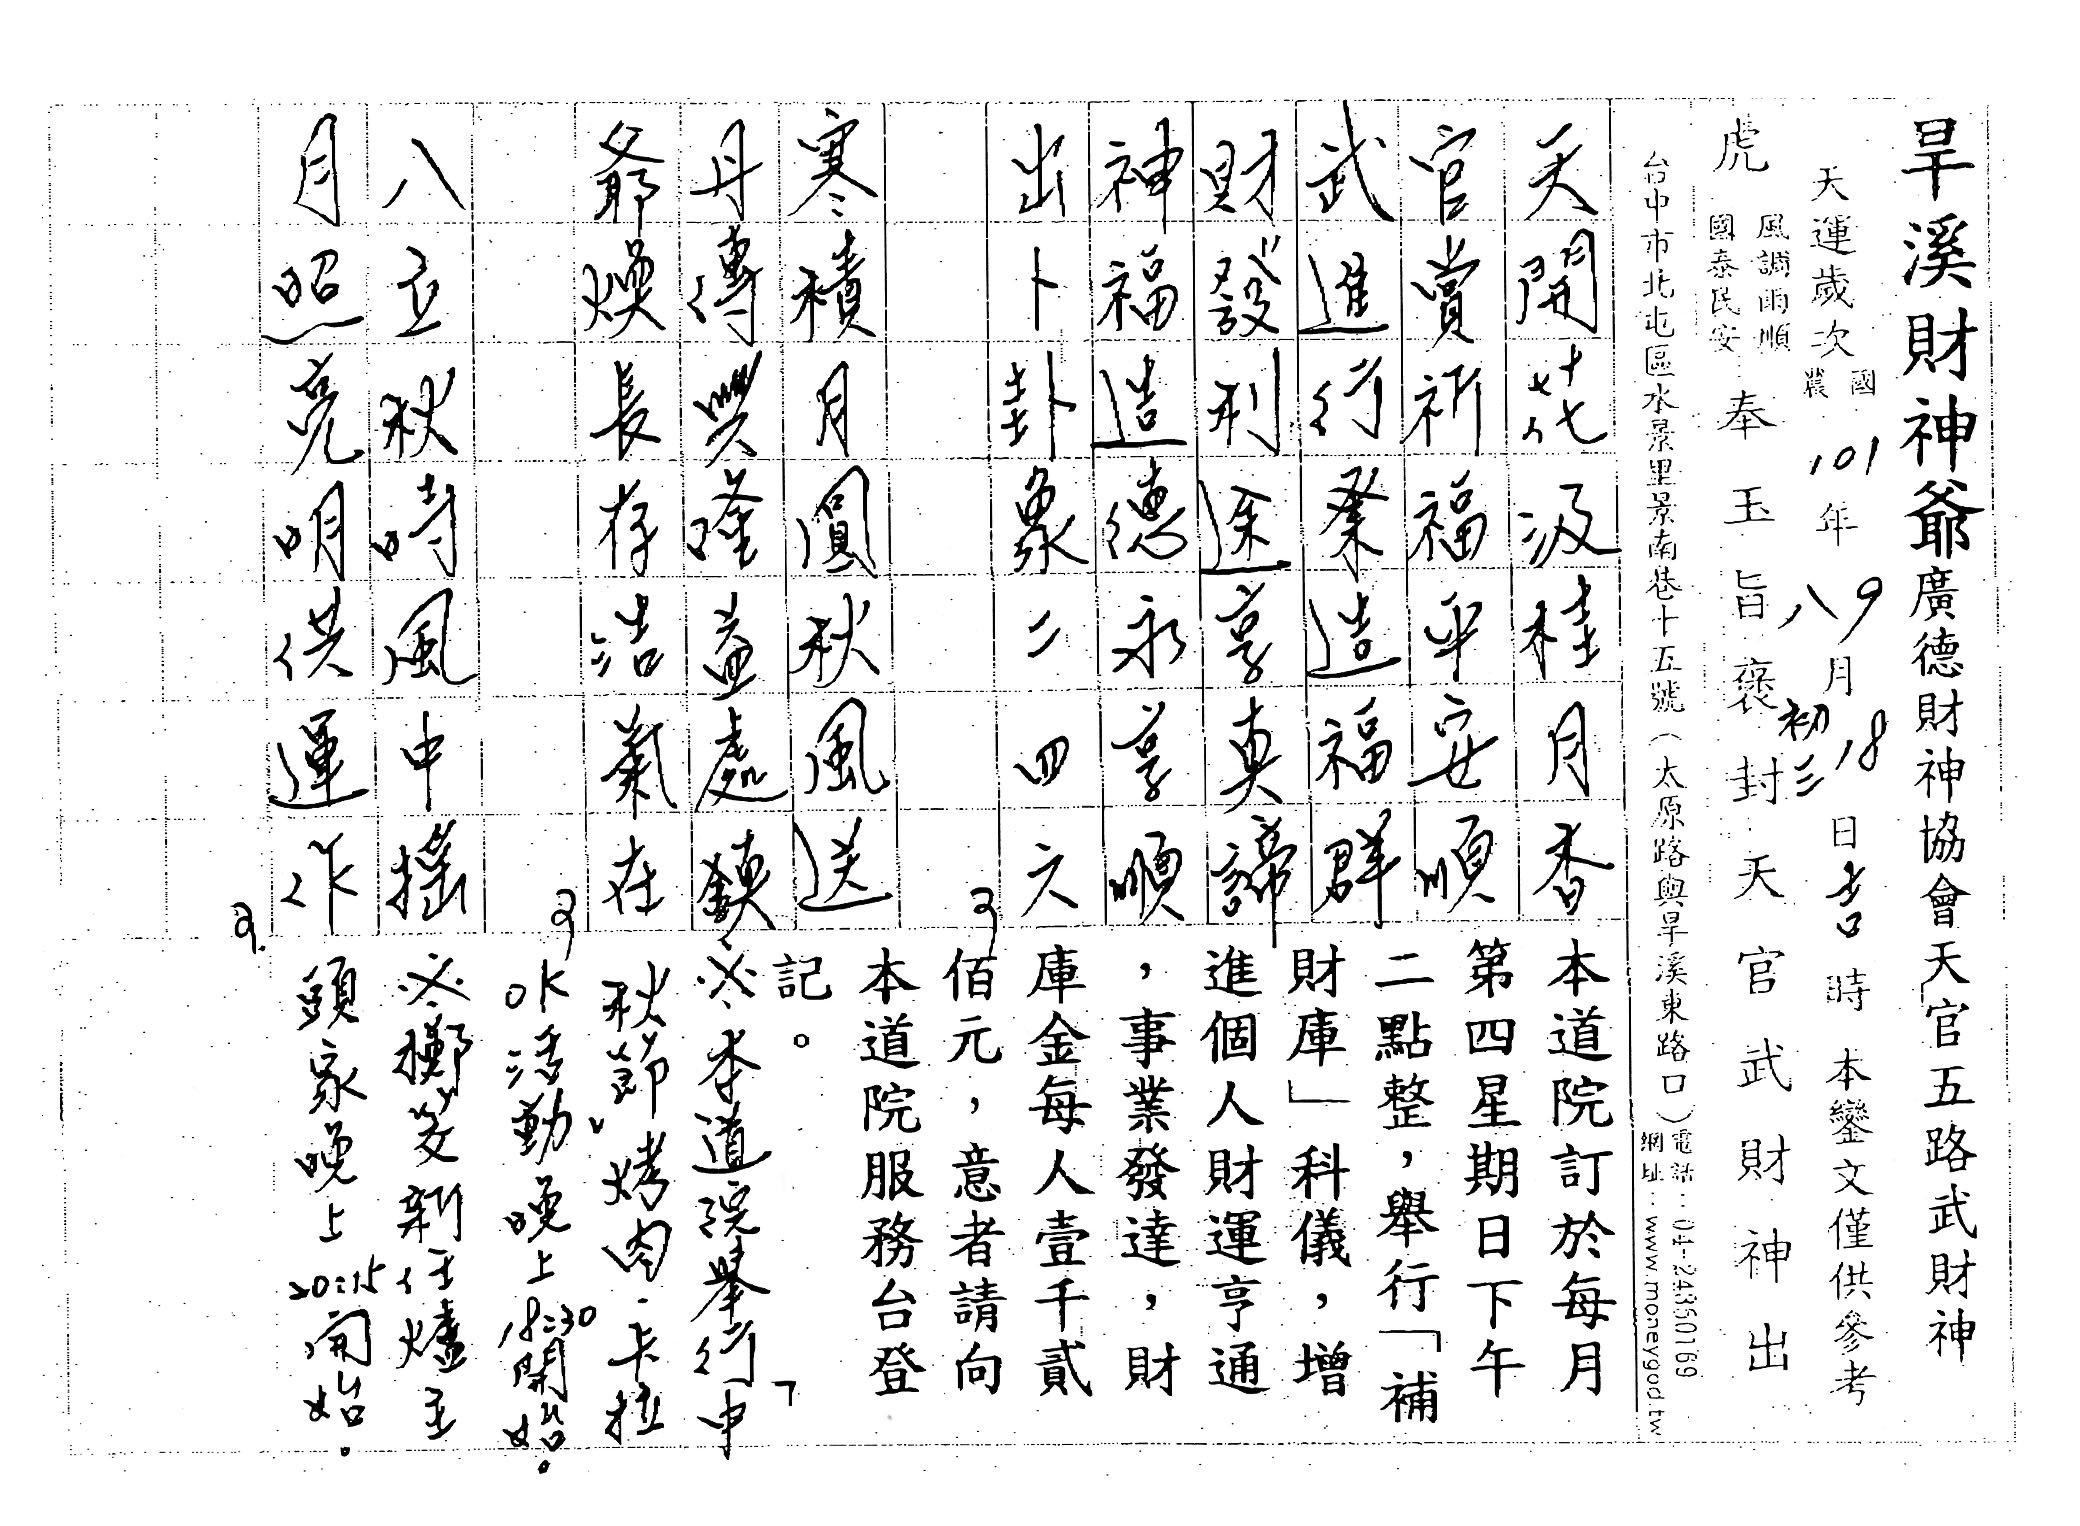 旱溪財神爺廣德財神協會天官五路武財神
天運歲次 國 農 101年 9 八 月 18 初三 日吉時 本鑾文僅供參考
虎 風調雨順 國泰民安 奉玉旨褒封天官武財神出
台中市北屯區水景里景南巷十五號（太原路與旱溪東路口）電話：04-24350169
網址：www.moneygod.tw
天開花汲桂月香
官賞祈福平安順
武進行業造福群
財發利途享真諦
神福造德永享順
出卜卦象二四六
寒積月圓秋風送
丹傳興隆益處鎮
爺煥長存浩氣在
八立秋時風中搖
月照亮明供運作
本道院訂於每月
第四星期日下午
二點整，舉行「補
財庫」科儀，增
進個人財運亨通
，事業發達，財
庫金每人壹千貳
佰元，意者請向
本道院服務台登
記。
※本道院舉行「中
秋節」烤肉、卡拉
OK活動晚上18:30開始。
※擲筊新任爐主
頭家晚上20:15開始。